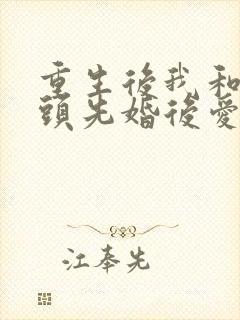 重生後我和
頭先婚後愛
江奉先